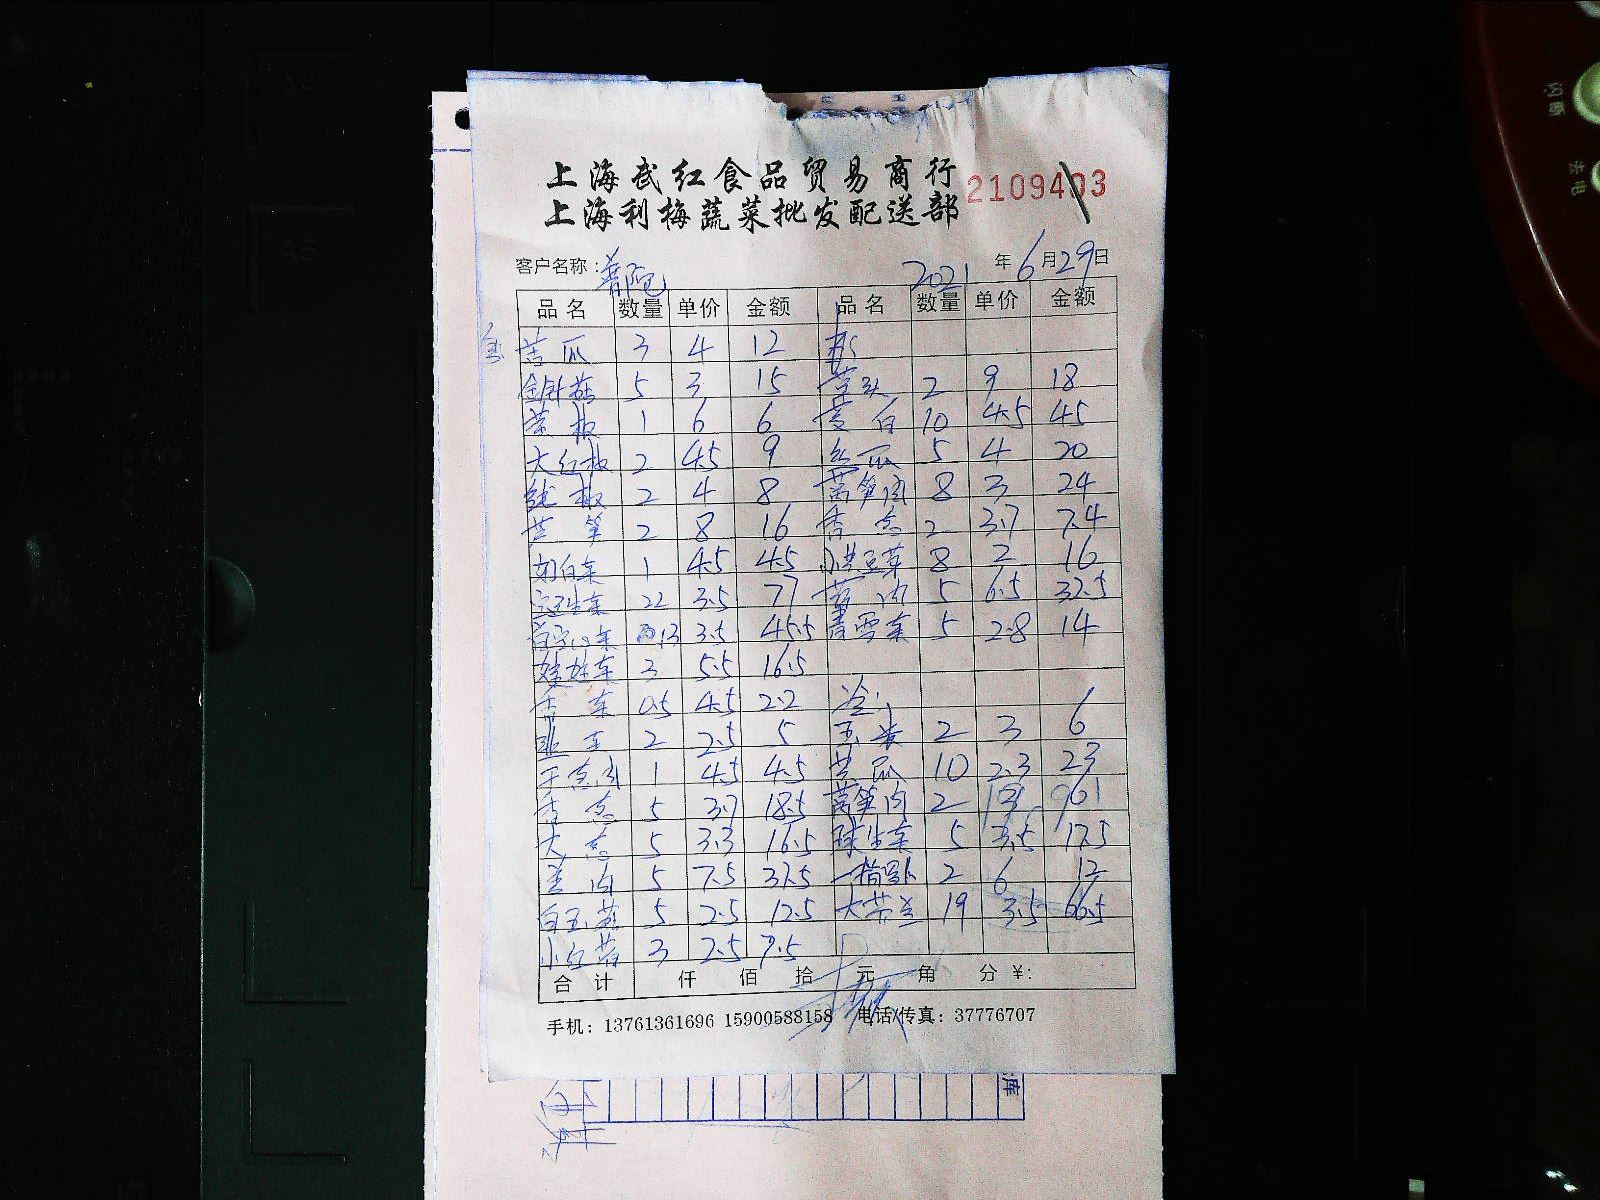 上海武红食品贸易商行
上海利梅蔬菜批发配送部
2109403
客户名称：普陀 2021年6月29日
品名 数量 单价 金额 品名 数量 单价 金额
苦瓜 3 4 12
金针菇 5 3 15 2 9 18
菜椒 1 6 6 茭白 10 4.5 45
大红椒 2 4.5 9 丝瓜 5 4 20
线椒 2 4 8 莴笋肉 8 3 24
芦笋 2 8 16 香葱 2 3.7 7.4
1 4.5 4.5 小黄豆芽 8 2 16
22 3.5 77 5 6.5 32.5
13 3.5 45.5 5 2.8 14
娃娃菜 3 5.5 16.5
香菜 0.5 4.5 2.2
2 2.5 5 2 3 6
1 4.5 4.5 10 2.3 23
香葱 5 3.7 18.5 莴笋肉 2
大葱 5 3.3 16.5 球生菜 5 3.5 17.5
姜肉 5 7.5 37.5 2 6 12
白玉菇 5 2.5 12.5 19 3.5 66.5
小红 3 2.5 7.5
合计 仟 佰 拾 元 角 分 ¥:
手机：13761361696 15900588158 电话/传真：37776707
库